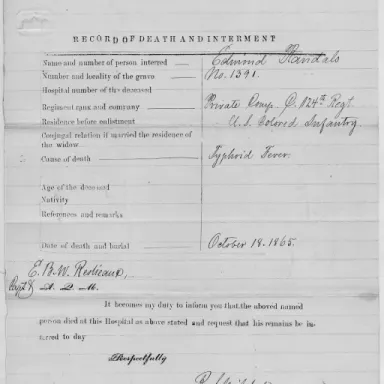 RECORD OF DEATH AND INTERMENT
Name and number of person interred Edmund
Number and locality of the grave No. 1391.
Hospital number of the deceased
Regiment rank and company Private Comp. C. 124th Regt.
Residence before enlistment U.S. Colored Infantry.
Conjugal relation if married the residence of
the widow
Cause of death Typhoid Fever.
Age of the deceased
Nativity
References and remarks
Date of death and burial October 18. 1865.
E. B. W.
Capt & A. Q. M.
It becomes my duty to inform you that the aboved named
person died at this Hospital as above stated and request that his remains be in-
terred to day
Respectfully